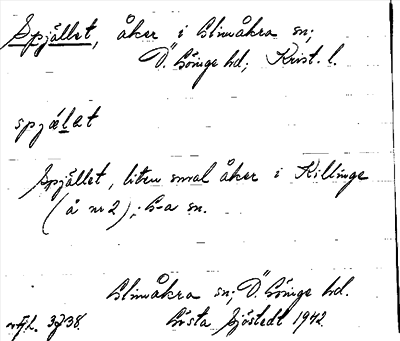 Spjället, åker i Glimåkra sn;
Ö. Göinge hd; Krist. l.
spjælat
Spjället, liten smal åker i Killinge
(å nr 2); G-a sn.
Glimåkra sn; Ö. Göinge hd.
Gösta Sjöstedt 1942.